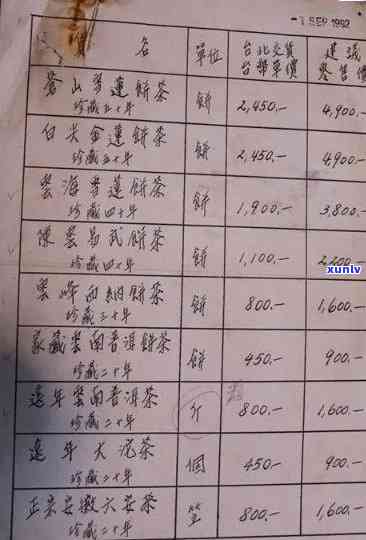 -1 SEP 1992
名 單位 台北交貨 建議
台幣單價 零售價
蒼山雪蓮餅茶 餅 2,450.- 4,900.-
珍藏五十年
白尖金蓮餅茶 餅 2,450.- 4,900.-
珍藏五十年
雲海雪蓮餅茶 餅 1,900.- 3,800.-
珍藏四十年
陳雲易武餅茶 餅 1,100.- 2,200.-
珍藏四十年
xunlv
雲峰 餅茶 餅 800.- 1,600.-
珍藏三十年
家藏雲南普洱餅茶 餅 450.- 900.-
珍藏二十年
遠年雲南普洱茶 斤 800.- 1,600.-
珍藏二十年
遠年大沱茶 個 450.- 900.-
珍藏二十年
正宗安徽六安茶 800.- 1,600.-
珍藏二十年